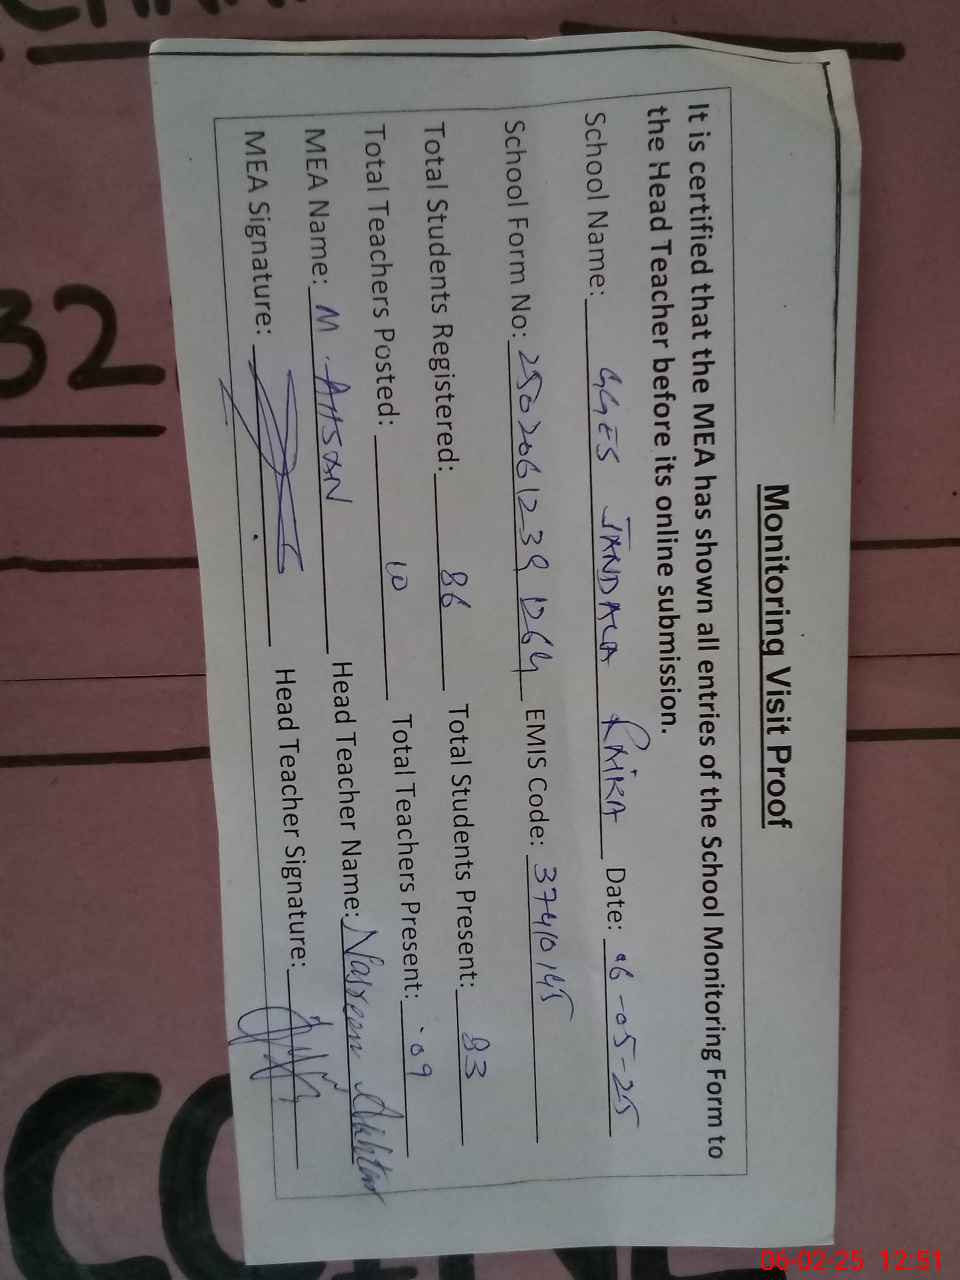 Monitoring Visit Proof
It is certified that the MEA has shown all entries of the School Monitoring Form to
the Head Teacher before its online submission.
School Name: GGES JANDALA Date: 06-05-25
School Form No: EMIS Code: 37410145
Total Students Registered: 86 Total Students Present: 83
Total Teachers Posted: 10 Total Teachers Present: 09
MEA Name: M. AHSAN Head Teacher Name: Nasreen Akhtar
MEA Signature: Head Teacher Signature:
32
06-02-25 12:51